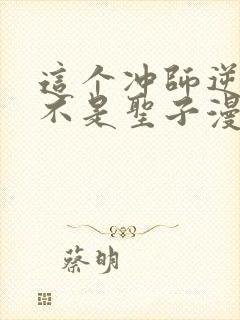 這个冲師逆
不是聖子漫
蔡明